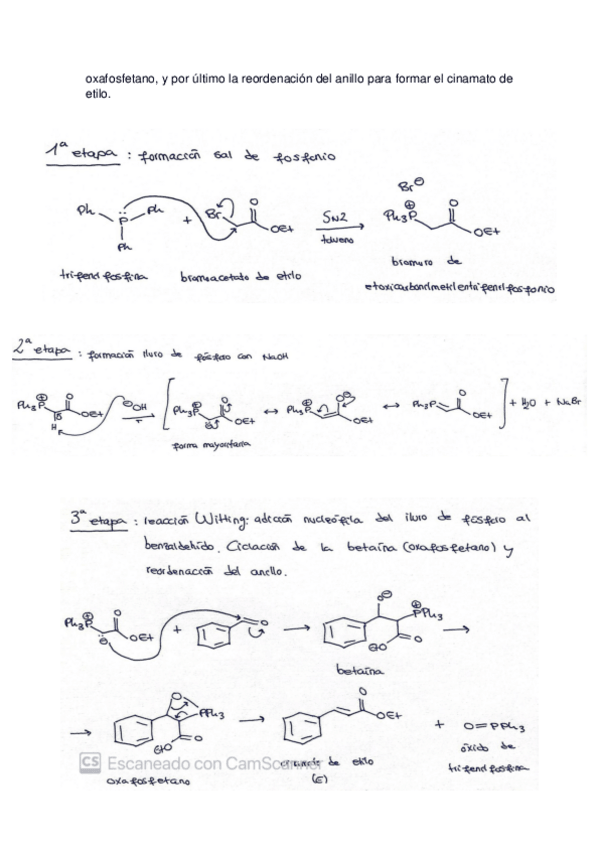 oxafosfetano, y por último la reordenación del anillo para formar el cinamato de
etilo.
1ª etapa : formación sal de fosfonio
Br⊖
Ph Ph Br O O
P + OEt SN2 Ph3P⊕ OEt
Ph tolueno
trifenilfosfina bromoacetato de etilo bromuro de
etoxicarbonilmetilentrifenilfosfonio
2ª etapa : formación iluro de fósforo con NaOH
Ph3P⊕ O OEt ⊖OH Ph3P⊕ O OEt ↔ Ph3P⊕ O⊖ OEt ↔ Ph3P O OEt + H2O + NaBr
H
forma mayoritaria
3ª etapa : reacción Witting: adición nucleófila del iluro de fósforo al
benzaldehído. Ciclación de la betaína (oxafosfetano) y
reordenación del anillo.
Ph3P⊕ O OEt + O → O⊖ ⊕PPh3 EtO O →
betaína
→ O PPh3 EtO O → O OEt + O=PPh3
CS Escaneado con CamScanner
de etilo óxido de
oxafosfetano (E) trifenilfosfina